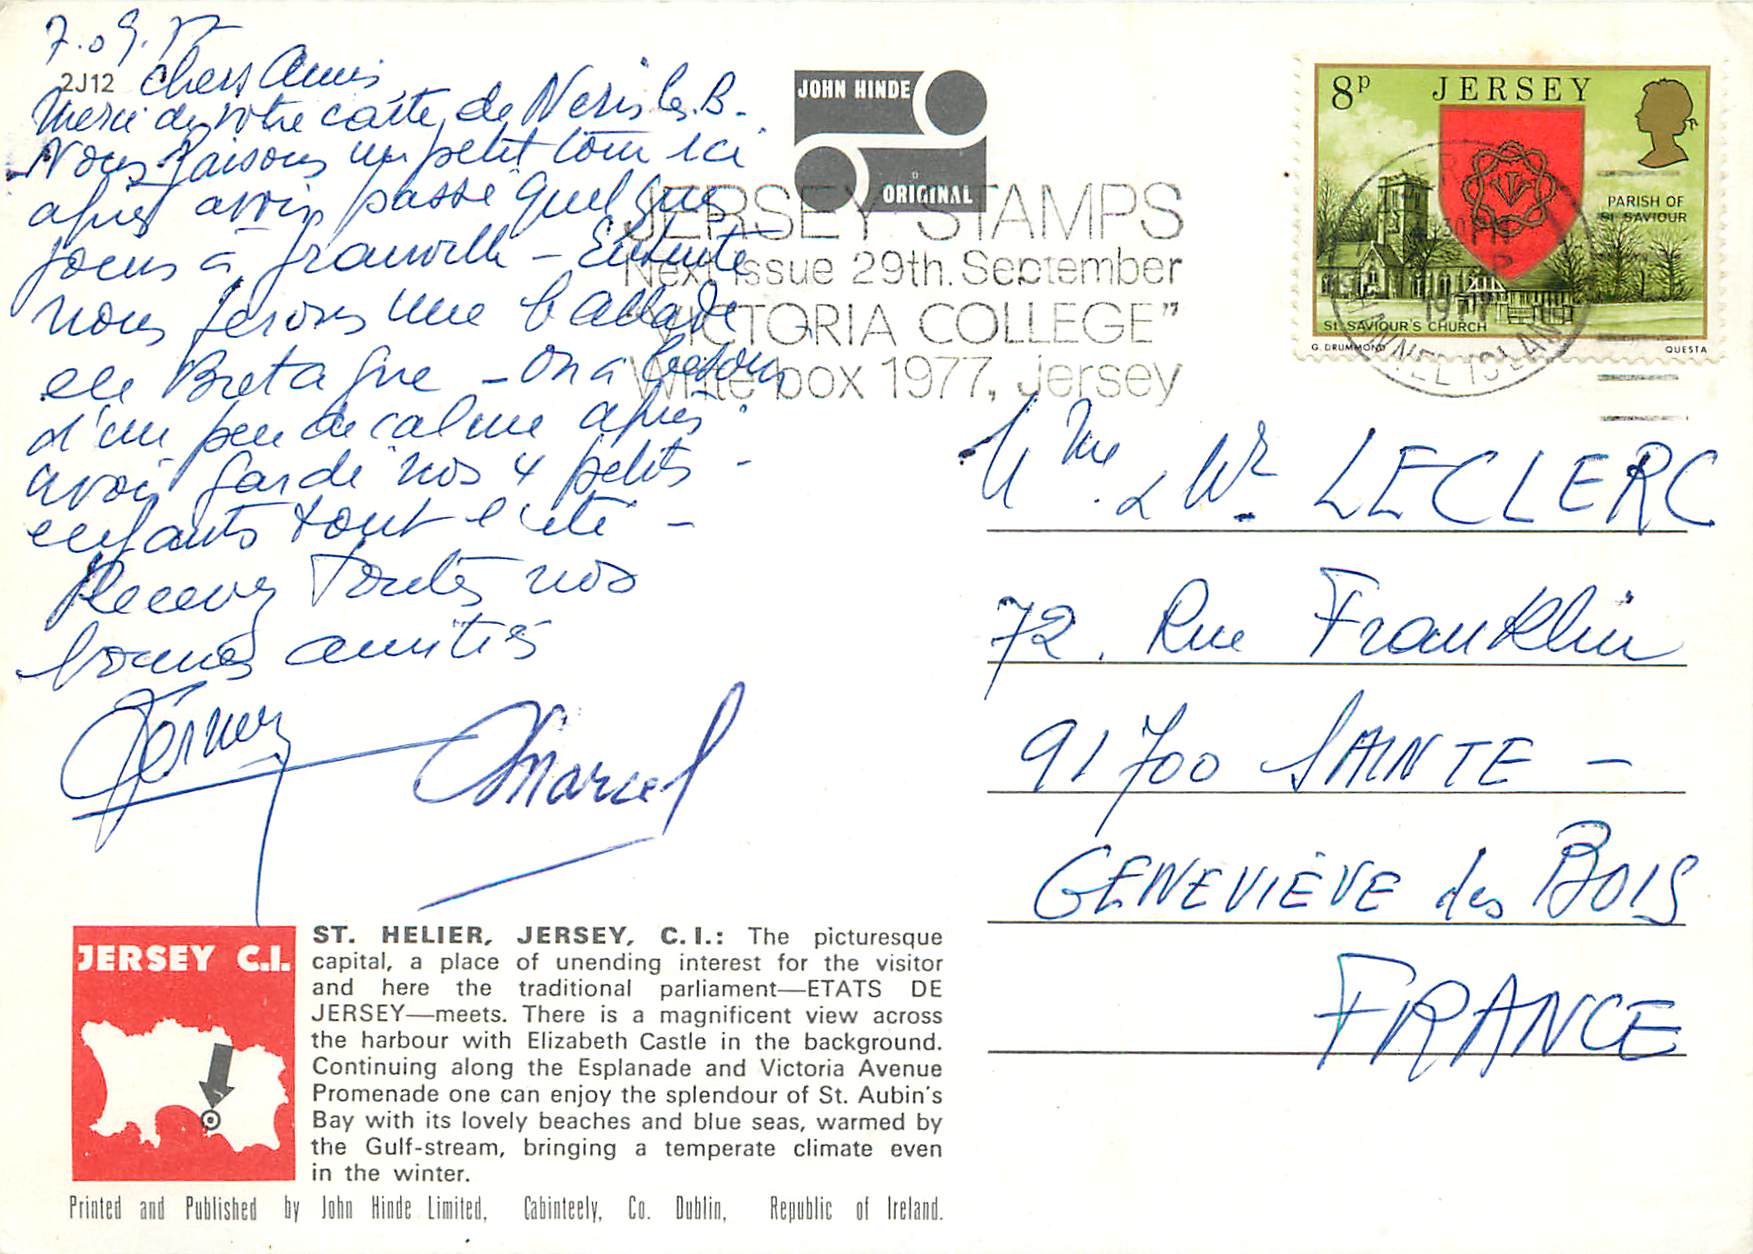 7.09.77
2J12 Chers Amis
Merci de votre carte de Neris les B.
Nous faisons un petit tour ici
après avoir passé quelques
jours à Granville - Ensuite
nous ferons une ballade
en Bretagne - On a besoin
d'un peu de calme après
avoir gardé nos 4 petits
enfants tout l'été -
Recevez toutes nos
bonnes amitiés
Marcel
JOHN HINDE
ORIGINAL
JERSEY STAMPS
Next issue 29th. September
"VICTORIA COLLEGE"
Write box 1977, Jersey
8P JERSEY
PARISH OF
ST SAVIOUR
ST. SAVIOUR'S CHURCH
G. DRUMMOND QUESTA
1977
CHANNEL ISLAN
Mme & Mr LECLERC
72. Rue Franklin
91700 SAINTE -
GENEVIÈVE des BOIS
FRANCE
JERSEY C.I.
ST. HELIER, JERSEY, C.I.: The picturesque
capital, a place of unending interest for the visitor
and here the traditional parliament—ETATS DE
JERSEY—meets. There is a magnificent view across
the harbour with Elizabeth Castle in the background.
Continuing along the Esplanade and Victoria Avenue
Promenade one can enjoy the splendour of St. Aubin's
Bay with its lovely beaches and blue seas, warmed by
the Gulf-stream, bringing a temperate climate even
in the winter.
Printed and Published by John Hinde Limited, Cabinteely, Co. Dublin, Republic of Ireland.